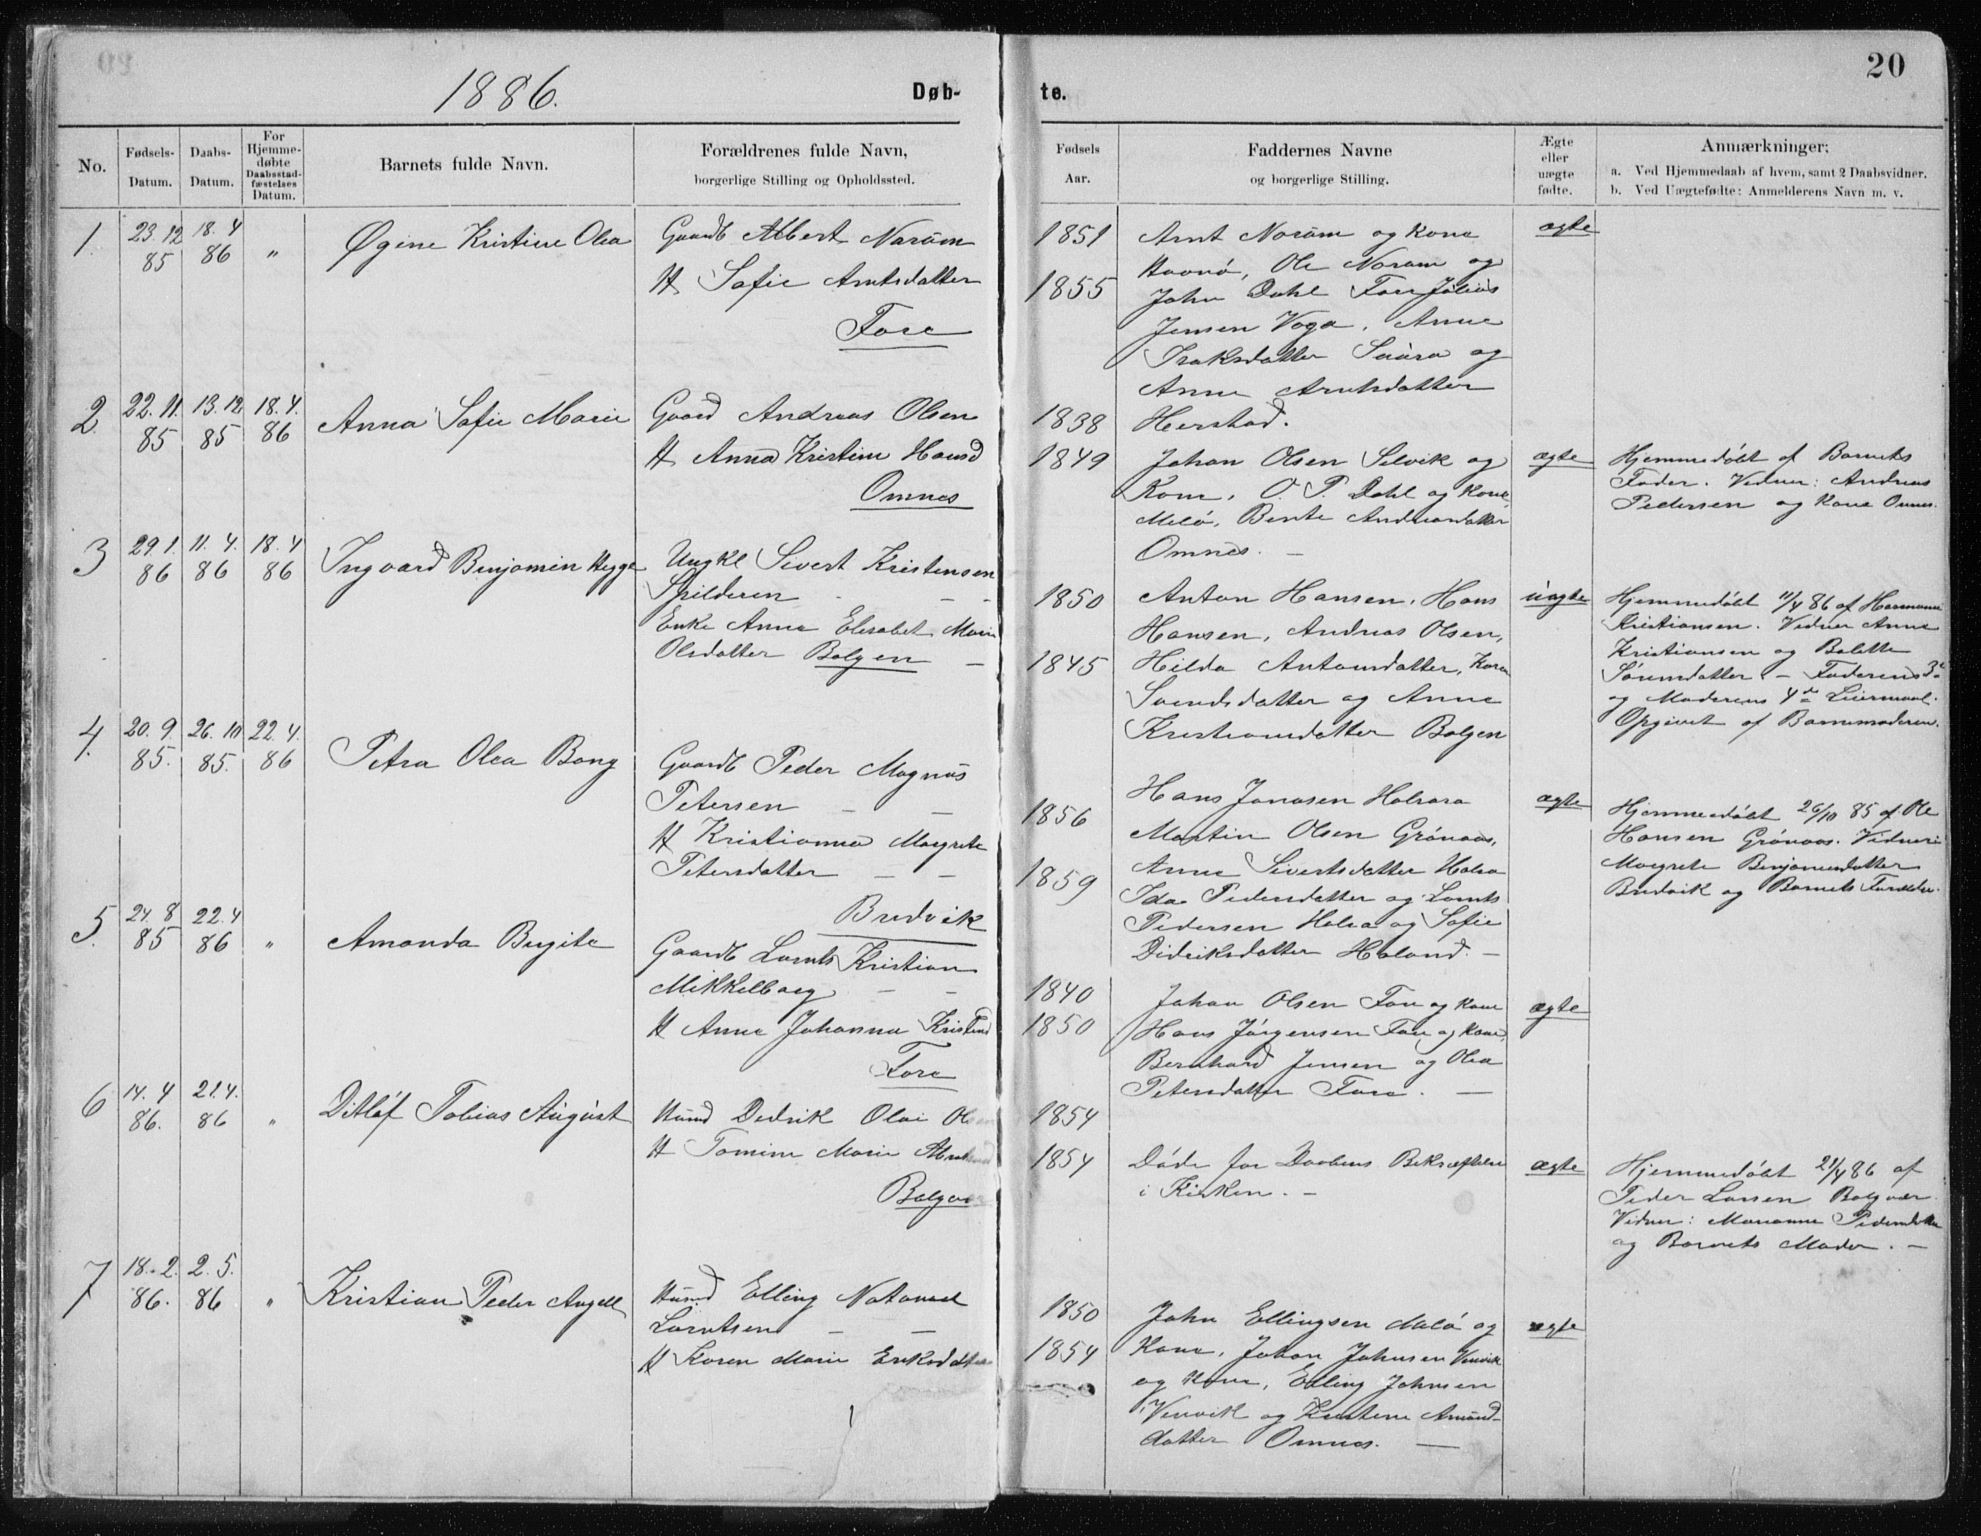 20
1886.
Døb-
te.
No.
Fødsels-
Datum.
Daabs-
Datum.
For
Hjemme-
døbte
Daabsstad-
fæstelses
Datum.
Barnets fulde Navn.
Forældrenes fulde Navn,
borgerlige Stilling og Opholdssted.
Fødsels
Aar.
Faddernes Navne
og borgerlige Stilling.
Ægte
eller
uægte
fødte.
Anmærkninger:
a. Ved Hjemmedaab af hvem, samt 2 Daabsvidner.
b. Ved Uægtefødte: Anmelderens Navn m. v.
1.
23.12
85
18.4
86
"
Øgine Kristine Olea
Gaardb Albert Norum
H Sofie Arntsdatter
Fore
1851
1855
Arnt Norum og Kone
Ole Norum og
John Dahl Fore
Jensen Voga, Anne
Isaksdatter Saura og
Anne Arntsdatter
Herstad.
ægte
2.
22.11.
85
13.12
85
18.4.
86
Anna Sofie Marie
Gaard Andreas Olsen
H Anna Kristine Hansd
Omnes
1838
1849
Johan Olsen Selvik og
Kone, O. P. Dahl og Kone
Melø, Bente Andreasdatter
Omnes. —
ægte
Hjemmedøbt af Barnets
Fader. Vidner: Andreas
Pedersen og Kone Omnes.
3
29.1.
86
11.4.
86
18.4
86
Ingvard Benjamin Hygge
Ungkl Sivert Kristensen
Spilderen - -
Enke Anne Elisabet Marie
Olsdatter Bolgen —
1850
1845
Anton Hansen, Hans
Hansen, Andreas Olsen,
Hilda Antonsdatter, Karen
Svendsdatter og Anne
Kristiansdatter Bolgen
uægte
Hjemmedøbt 11/4 86 af Hermann
Kristiansen. Vidner Anne
Kristiansen og Bolette
Sørensdatter - Faderens 3de
og Moderens 4de Leiermaal.
Opgivet af Barnemoderen.
4.
20.9.
85.
26.10
85.
22.4.
86
Petra Olea Bang
Gaardb Peder Magnus
Petersen - -
H Kristianna Margrete
Petersdatter - -
Bredvik
1856
1859
Hans Jonasen
Martin Olsen Grønaas,
Anne Sivertsdatter
Ida Pedersdatter og Lornts
Pedersen og Sofie
Didriksdatter Holand. —
ægte
Hjemmedøbt 26/10 85 af Ole
Hansen Grønaas. Vidner:
Margrete Benjaminsdatter
Bredvik og Barnets Forældre.
5.
24.8
85
22.4
86
"
Amanda Birgite
Gaardb Lornts Kristian
Mikkelborg - -
H Anne Johanna
Fore
1840
1850
Johan Olsen Fore og Kone
Hans Jørgensen Fore og Kone,
Bernhard Jensen og Olea
Petersdatter Fore. —
ægte
6
14.4
86.
21.4.
86
"
Ditløf Tobias August
Husmd Dedrik Olai Olsen
H Tomine Marie
Bolgvær
1854
1854
Døde før Daabens Bekræftelse
i Kirken. —
ægte
Hjemmedøbt 21/4 86 af
Peder Larsen Bolgvær.
Vidner: Marianne Pedersdatter
og Barnets Moder. —
7
18.2.
86.
2.5.
86
"
Kristian Peder Angell
Husmd Elling Natanael
Lorntsen — —
H Karen Marie Eriksdatter
1850
1854
John Ellingsen Melø og
Kone, Johan Johnsen Venvik
og Kone, Elling Johnsen
Venvik og Kirstine Amund-
datter Omnes. —
ægte